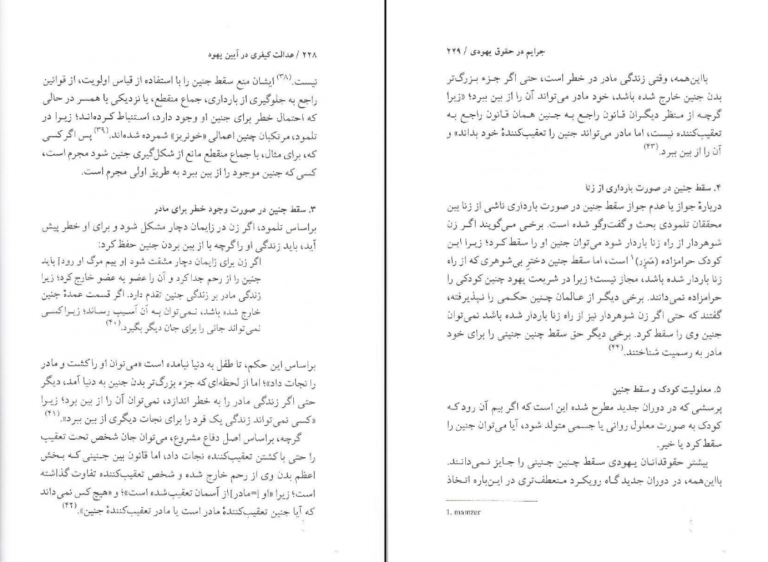 ۲۲۸ / عدالت کیفری در آیین یهود
نیست.(۳۸) ایشان منع سقط جنین را با استفاده از قیاس اولویت، از قوانین
راجع به جلوگیری از بارداری، جماع منقطع، یا نزدیکی با همسر در حالی
که احتمال خطر برای جنین او وجود دارد، استنباط کرده‌اند؛ زیرا در
تلمود، مرتکبان چنین اعمالی «خونریز» شمرده شده‌اند.(۳۹) پس اگر کسی
که، برای مثال، با جماع منقطع مانع از شکل‌گیری جنین شود مجرم است،
کسی که جنین موجود را از بین ببرد به طریق اولی مجرم است.
۳. سقط جنین در صورت وجود خطر برای مادر
براساس تلمود، اگر زن در زایمان دچار مشکل شود و برای او خطر پیش
آید، باید زندگی او را گرچه با از بین بردن جنین حفظ کرد:
اگر زن برای زایمان دچار مشقت شود او [و بیم مرگ او رود] باید
جنین را از رحم جدا کرد و آن را عضو به عضو خارج کرد؛ زیرا
زندگی مادر بر زندگی جنین تقدم دارد. اگر قسمت عمدهٔ جنین
خارج شده باشد، نمی‌توان به آن آسیب رساند؛ زیرا کسی
نمی‌تواند جانی را برای جان دیگر بگیرد.(۴۰)
براساس این حکم، تا طفل به دنیا نیامده است «می‌توان او را کشت و مادر
را نجات داد»؛ اما از لحظه‌ای که جزء بزرگ‌تر بدن جنین به دنیا آمد، دیگر
حتی اگر زندگی مادر را به خطر اندازد، نمی‌توان آن را از بین برد؛ زیرا
«کسی نمی‌تواند زندگی یک فرد را برای نجات دیگری از بین ببرد».(۴۱)
گرچه، براساس اصل دفاع مشروع، می‌توان جان شخص تحت تعقیب
را حتی با کشتن تعقیب‌کننده نجات داد، اما قانون بین جنینی که بخش
اعظم بدن وی از رحم خارج شده و شخص تعقیب‌کننده تفاوت گذاشته
است؛ زیرا «او [=مادر] از آسمان تعقیب شده است»؛ و «هیچ کس نمی‌داند
که آیا جنین تعقیب‌کنندهٔ مادر است یا مادر تعقیب‌کنندهٔ جنین».(۴۲)
جرایم در حقوق یهودی / ۲۲۹
بااین‌همه، وقتی زندگی مادر در خطر است، حتی اگر جزء بزرگ‌تر
بدن جنین خارج شده باشد، خود مادر می‌تواند آن را از بین ببرد؛ «زیرا
گرچه از منظر دیگران قانون راجع به جنین همان قانون راجع به
تعقیب‌کننده نیست، اما مادر می‌تواند جنین را تعقیب‌کنندهٔ خود بداند» و
آن را از بین ببرد.(۴۳)
۴. سقط جنین در صورت بارداری از زنا
دربارهٔ جواز یا عدم جواز سقط جنین در صورت بارداری ناشی از زنا بین
محققان تلمودی بحث و گفت‌وگو شده است. برخی می‌گویند اگر زن
شوهردار از راه زنا باردار شود می‌توان جنین او را سقط کرد؛ زیرا این
کودک حرامزاده (مَمزِر)۱ است، اما سقط جنین دختر بی‌شوهری که از راه
زنا باردار شده باشد، مجاز نیست؛ زیرا در شریعت یهود چنین کودکی را
حرامزاده نمی‌دانند. برخی دیگر از عالمان چنین حکمی را نپذیرفته،
گفتند که حتی اگر زن شوهردار نیز از راه زنا باردار شده باشد نمی‌توان
جنین وی را سقط کرد. برخی دیگر حق سقط چنین جنینی را برای خود
مادر به رسمیت شناختند.(۴۴)
۵. معلولیت کودک و سقط جنین
پرسشی که در دوران جدید مطرح شده این است که اگر بیم آن رود که
کودک به صورت معلول روانی یا جسمی متولد شود، آیا می‌توان جنین را
سقط کرد یا خیر.
بیشتر حقوقدانان یهودی سقط چنین جنینی را جایز نمی‌دانند.
بااین‌همه، در دوران جدید گاه رویکرد منعطف‌تری در این‌باره اتخاذ
1. mamzer